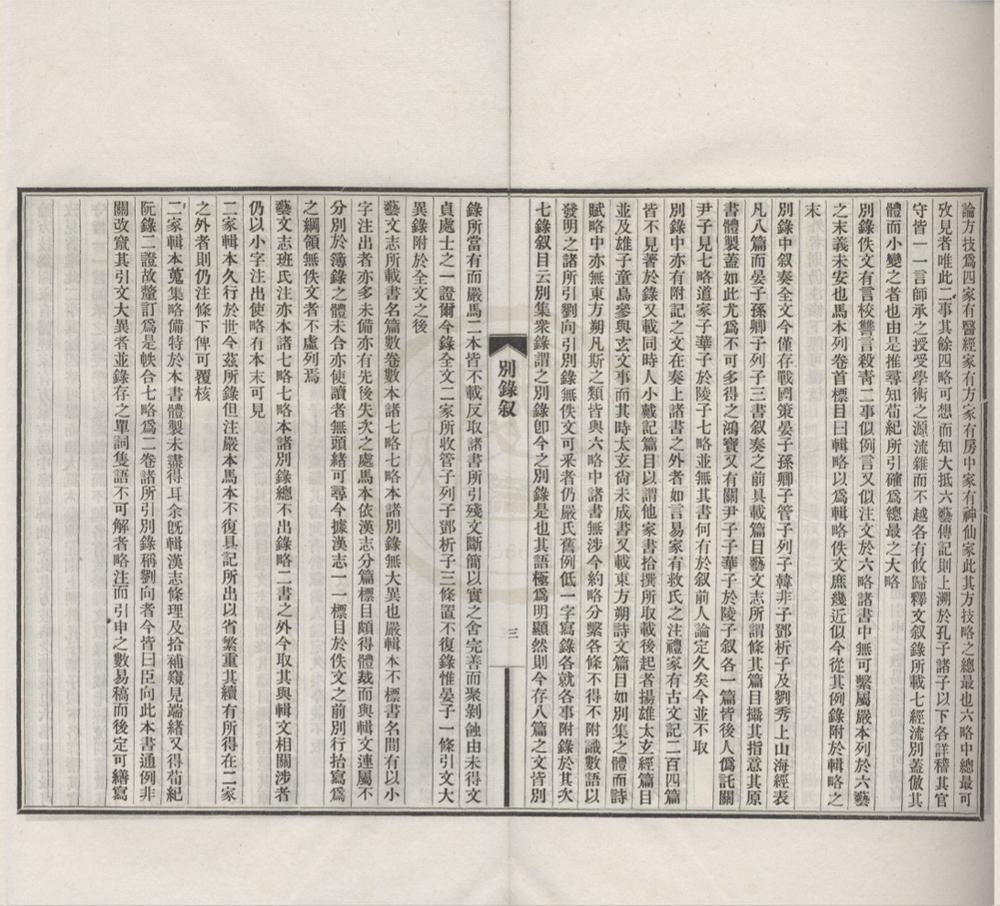 論方技爲四家有醫經家有方家有房中家有神仙家此其方技略之總最也六略中總最可
攷見者唯此二事其餘四略可想而知大抵六藝傳記則上溯於孔子諸子以下各詳稽其官
守皆一一言師承之授受學術之源流雜而不越各有攸歸釋文叙錄所載七經流別蓋倣其
體而小變之者也由是推尋知荀紀所引確爲總最之大略
別錄佚文有言校讐言殺靑二事似例言又似注文於六略諸書中無可繫屬嚴本列於六藝
之末義未安也馬本列卷首標目曰輯略以爲輯略佚文庶幾近似今從其例錄附於輯略之
末
別錄中叙奏全文今僅存戰國策晏子孫卿子管子列子韓非子鄧析子及劉秀上山海經表
凡八篇而晏子孫卿子列子三書叙奏之前具載篇目藝文志所謂條其篇目攝其指意其原
書體製蓋如此尤爲不可多得之鴻寶又有關尹子子華子於陵子叙各一篇皆後人僞託關
尹子見七略道家子華子於陵子七略並無其書何有於叙前人論定久矣今並不取
別錄中亦有附記之文在奏上諸書之外者如言易家有救氏之注禮家有古文記二百四篇
皆不見著於錄又載同時人小戴記篇目以謂他家書拾撰所取載後起者揚雄太玄經篇目
並及雄子童烏參與玄文事而其時太玄尙未成書又載東方朔詩文篇目如別集之體而詩
賦略中亦無東方朔凡斯之類皆與六略中諸書無涉今約略分繫各條不得不附識數語以
發明之諸所引劉向引別錄無佚文可釆者仍嚴氏舊例低一字寫錄各就各事附錄於其次
七錄叙目云別集衆錄謂之別錄卽今之別錄是也其語極爲明顯然則今存八篇之文皆別
別錄叙
三
錄所當有而嚴馬二本皆不載反取諸書所引殘文斷簡以實之舍完善而聚剝蝕由未得文
貞處士之一證爾今錄全文二家所收管子列子鄧析子三條置不復錄惟晏子一條引文大
異錄附於全文之後
藝文志所載書名篇數卷數本諸七略七略本諸別錄無大異也嚴輯本不標書名間有以小
字注出者亦多未備亦有先後失次之處馬本依漢志分篇標目頗得體裁而與輯文連屬不
分別於簿錄之體未合亦使讀者無頭緒可尋今據漢志一一標目於佚文之前別行抬寫爲
之綱領無佚文者不虛列焉
藝文志班氏注亦本諸七略七略本諸別錄總不出錄略二書之外今取其與輯文相關涉者
仍以小字注出使略有本末可見
二家輯本久行於世今茲所錄但注嚴本馬本不復具記所出以省繁重其續有所得在二家
之外者則仍注條下俾可覆核
二家輯本蒐集略備特於本書體製未盡得耳余旣輯漢志條理及拾補窺見端緒又得荀紀
阮錄二證故釐訂爲是帙合七略爲二卷諸所引別錄稱劉向者今皆曰臣向此本書通例非
關改竄其引文大異者並錄存之單詞隻語不可解者略注而引申之數易稿而後定可繕寫